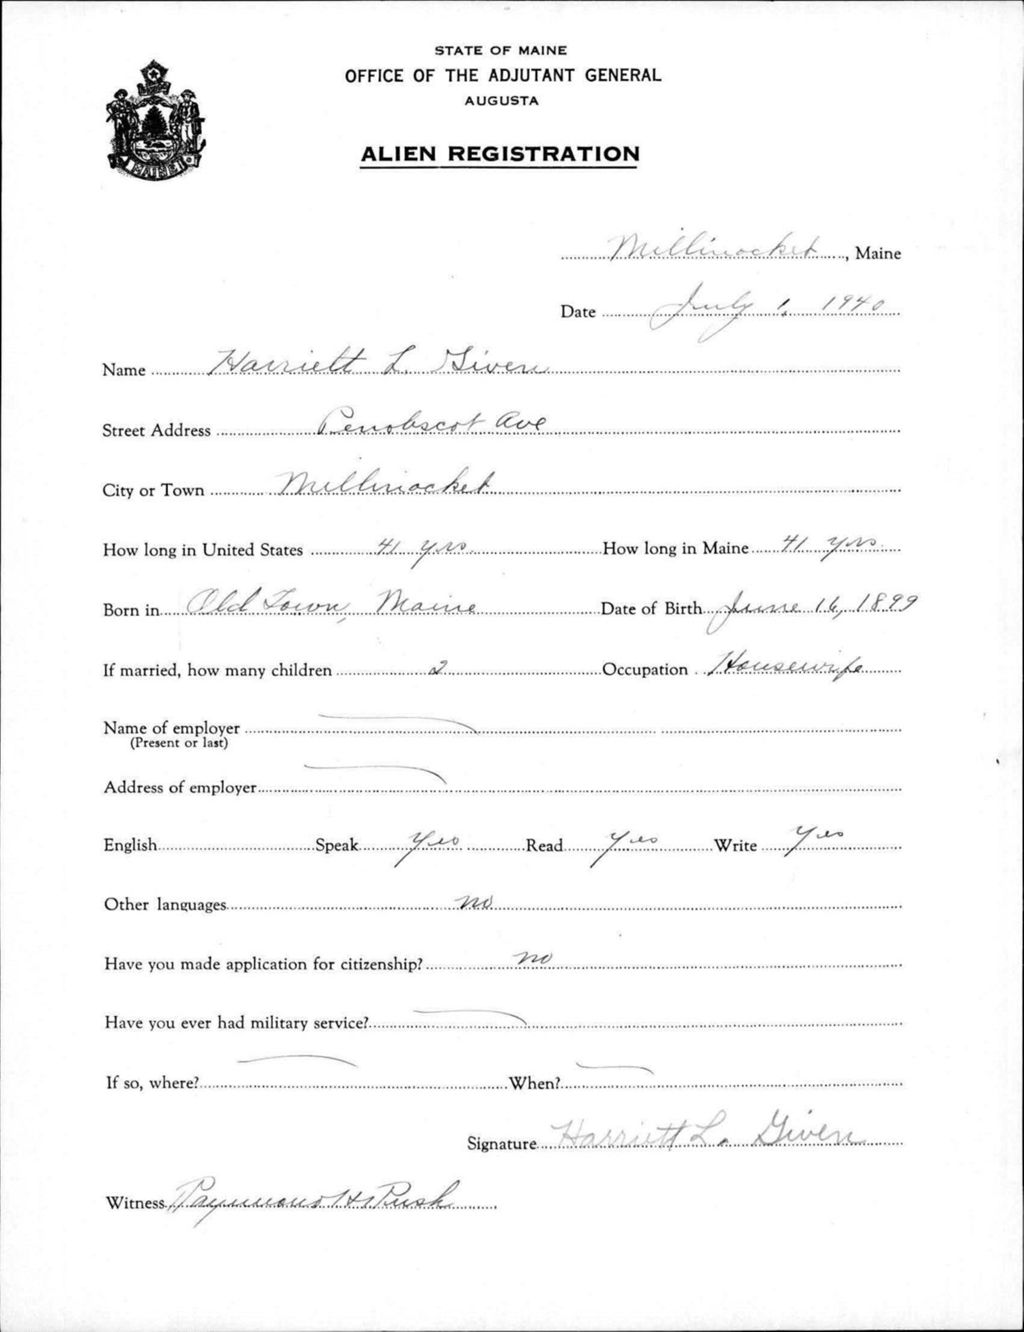 STATE OF MAINE
OFFICE OF THE ADJUTANT GENERAL
AUGUSTA
ALIEN REGISTRATION
MAINE
Millinocket, Maine
Date July 1, 1940
Name Harriett L. Given
Street Address Penobscot Ave
City or Town Millinocket
How long in United States 41 yrs How long in Maine 41 yrs
Born in Old Town, Maine Date of Birth June 16, 1899
If married, how many children 2 Occupation Housewife
Name of employer
(Present or last)
Address of employer
English Speak Yes Read Yes Write Yes
Other languages no
Have you made application for citizenship? no
Have you ever had military service?
If so, where? When?
Signature Harriett L. Given
Witness Raymond H. Rush